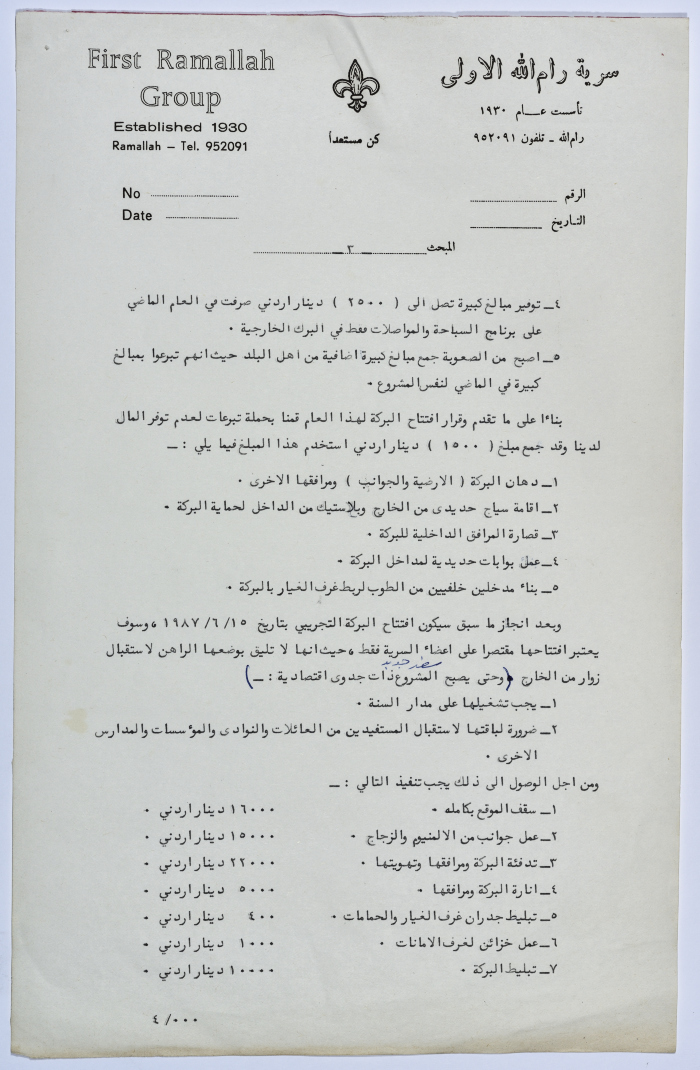 First Ramallah
Group
Established 1930
Ramallah – Tel. 952091
كن مستعداً
سرية رام الله الاولى
تأسست عــام ١٩٣٠
رام الله ـ تلفون ٩٥٢٠٩١
No ........................
Date ........................
الرقم ........................
التـاريخ ........................
المبحث ........ ـ ٣ ـ ........
٤ـ توفير مبالغ كبيرة تصل الى ( ٢٥٠٠ ) دينار اردني صرفت في العام الماضي
على برنامج السباحة والمواصلات فقط في البرك الخارجية ٠
٥ـ اصبح من الصعوبة جمع مبالغ كبيرة اضافية من اهل البلد حيث انهم تبرعوا بمبالغ
كبيرة في الماضي لنفس المشروع ٠
بناءا على ما تقدم وقرار افتتاح البركة لهذا العام قمنا بحملة تبرعات لعدم توفر المال
لدينا وقد جمع مبلغ ( ١٥٠٠ ) دينار اردني استخدم هذا المبلغ فيما يلي : ــ
١ـ دهان البركة ( الارضية والجوانب ) ومرافقها الاخرى ٠
٢ـ اقامة سياج حديدى من الخارج وبلاستيك من الداخل لحماية البركة ٠
٣ـ قصارة المرافق الداخلية للبركة ٠
٤ـ عمل بوابات حديدية لمداخل البركة ٠
٥ـ بناء مدخلين خلفيين من الطوب لربط غرف الغيار بالبركة ٠
وبعد انجاز ما سبق سيكون افتتاح البركة التجريبي بتاريخ ١٩٨٧/٦/١٥ ، وسوف
يعتبر افتتاحها مقتصرا على اعضاء السرية فقط ، حيث انها لا تليق بوضعها الراهن لاستقبال
سطر جديد
زوار من الخارج ( وحتى يصبح المشروع ذات جدوى اقتصادية : ــ )
١ـ يجب تشغيلها على مدار السنة ٠
٢ـ ضرورة لباقتها لاستقبال المستفيدين من العائلات والنوادى والمؤسسات والمدارس
الاخرى ٠
ومن اجل الوصول الى ذلك يجب تنفيذ التالي : ــ
١ـ سقف الموقع بكامله ٠ ١٦٠٠٠ دينار اردني ٠
٢ـ عمل جوانب من الالمنيوم والزجاج ٠ ١٥٠٠٠ دينار اردني ٠
٣ـ تدفئة البركة ومرافقها وتهويتها ٠ ٢٢٠٠٠ دينار اردني ٠
٤ـ انارة البركة ومرافقها ٠ ٥٠٠٠ دينار اردني ٠
٥ـ تبليط جدران غرف الغيار والحمامات ٠ ٤٠٠ دينار اردني ٠
٦ـ عمل خزائن لغرف الامانات ٠ ١٠٠٠ دينار اردني ٠
٧ـ تبليط البركة ٠ ١٠٠٠٠ دينار اردني ٠
٤ /٠٠٠